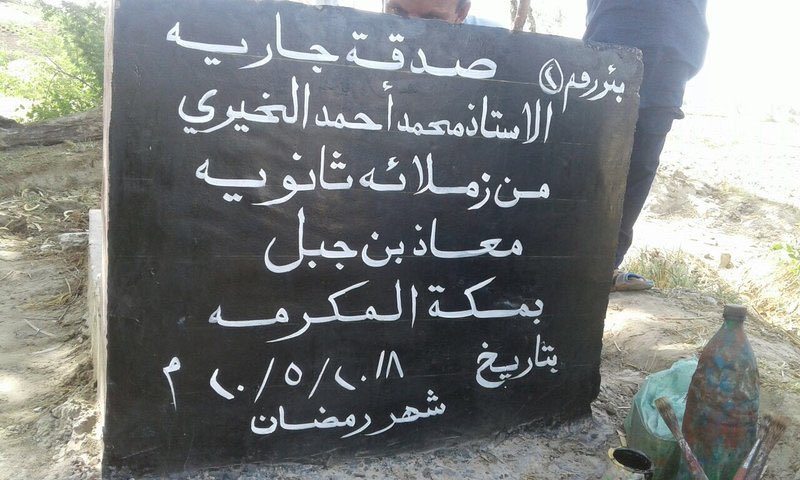 صدقة جاريه
بئر رقم (٢)
الاستاذ محمد أحمد الخيري
من زملائه ثانويه
معاذ بن جبل
بمكة المكرمه
بتاريخ ٢٠/٥/٢٠١٨ م
شهر رمضان